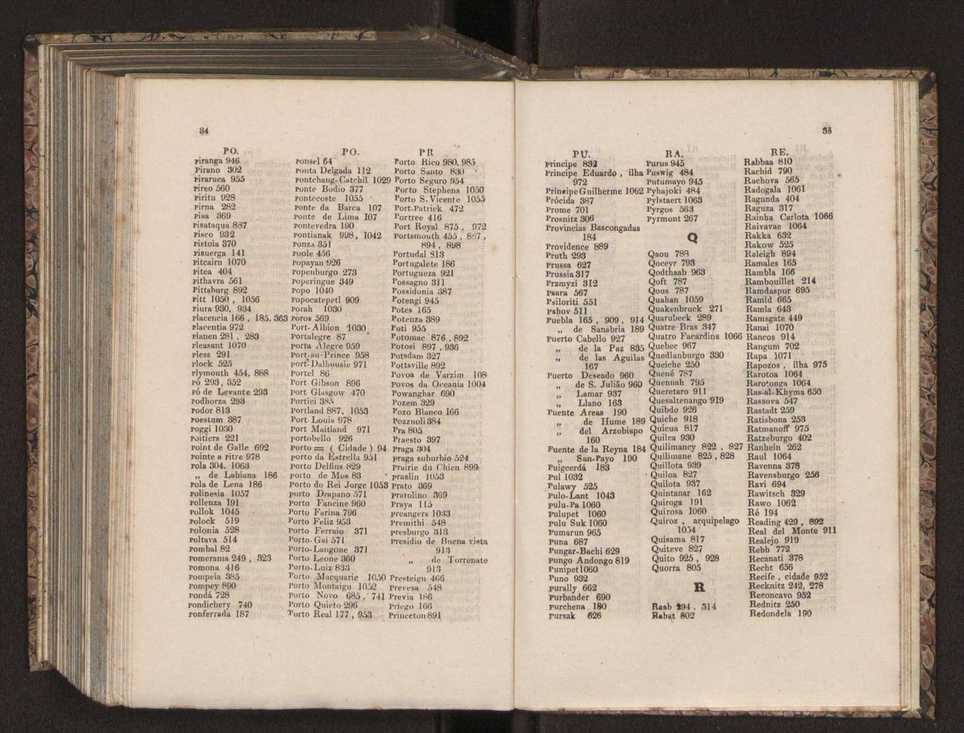 34
PO.
Piranga 946
Pirano 302
Piraruca 955
Pireo 560
Piritu 928
Pirna 282
Pisa 369
Pisataqua 887
Pisco 932
Pistoia 370
Pisuerga 141
Pitcairn 1070
Pitea 404
Pithavra 561
Pittsburg 892
Pitt 1050 , 1056
Piura 930, 934
Placencia 166 , 185, 363
Placentia 972
Planen 281 , 283
Pleasant 1070
Pless 291
Plock 525
Plymouth 454, 888
Pó 293 , 352
Pó de Levante 293
Podhorza 293
Podor 813
Poestum 387
Poggi 1050
Poitiers 221
Point de Galle 692
Pointe a Pitre 978
Pola 304. 1063
„ de Labiana 186
Pola de Lena 186
Polinesia 1057
Pollenza 191
Pollok 1045
Polock 519
Polonia 528
Poltava 514
Pombal 82
Pomerania 249 , 323
Pomona 416
Pompeia 385
Pompey 890
Pondá 728
Pondichery 740
Ponferrada 187
PO.
Ponsel 64
Ponta Delgada 112
Pontchang-Catchil 1029
Ponte Bodio 377
Pontecoste 1055
Ponte da Barca 107
Ponte de Lima 107
Pontevedra 190
Pontianak 998, 1042
Ponza 351
Poole 456
Popayan 926
Popenburgo 273
Poperingue 349
Popo 1040
Popocatepetl 909
Porah 1030
Poros 569
Port-Albion 1030
Portalegre 87
Porta Alegre 959
Port-au-Prince 958
Port-Dalhousie 971
Portel 86
Port Gibson 896
Port Glasgow 470
Portici 385
Portland 887, 1053
Port Louis 978
Port Maitland 971
Portobello 926
Porto = ( Cidade ) 94
Porto da Estrella 951
Porto Delfim 829
Porto de Mos 83
Porto do Rei Jorge 1053
Porto Drapano 571
Porto Fancine 960
Porto Farina 796
Porto Feliz 953
Porto Ferraio 371
Porto Gai 571
Porto-Langone 371
Porto Leone 360
Porto-Luiz 833
Porto Macquarie 1050
Porto Montaigu 1052
Porto Novo 685 , 741
Porto Quieto 296
Porto Real 177 , 953
PR
Porto Rico 980, 985
Porto Santo 830
Porto Seguro 954
Porto Stephens 1050
Porto S. Vicente 1055
Port-Patrick 472
Portree 416
Port Royal 875 , 972
Portsmouth 455 , 887 ,
894 , 898
Portudal 813
Portugalete 186
Portugueza 921
Possagno 311
Possidonia 387
Potengi 945
Potes 165
Potenza 389
Poti 955
Potomac 876 , 892
Potosi 897 , 936
Potsdam 327
Pottsville 892
Povoa de Varzim 108
Povos da Oceania 1004
Powanghar 690
Pozem 329
Pozo Blanco 166
Pozznoli 384
Pra 805
Praesto 397
Praga 304
Praga suburbio 524
Prairie du Chien 899
Praslin 1053
Prato 369
Pratolino 369
Praya 115
Preangers 1033
Premithi 548
Presburgo 313
Presidio de Buena vista
913
„ de Torrenato
913
Presteign 466
Prevesa 548
Previa 186
Priego 166
Princeton 891
35
PU.
Principe 832
Principe Eduardo , ilha
972
Principe Guilherme 1062
Prócida 387
Prome 701
Prosnitz 306
Provincias Bascongadas
184
Providence 889
Pruth 293
Prussa 627
Prussia 317
Przmyzi 312
Psara 567
Psiloriti 551
Pshov 511
Puebla 165 , 909 , 914
„ de Sanabria 189
Puerto Cabello 927
„ de la Paz 835
„ de las Aguilas
167
Puerto Deseado 960
„ de S. Julião 960
„ Lamar 937
„ Llano 163
Puente Areas 190
„ de Hume 189
„ del Arzobispo
160
Puente de la Reyna 184
„ San-Payo 190
Puigcerdá 183
Pul 1032
Pulawy 525
Pulo-Lant 1043
Pulu-Pa 1060
Pulupet 1060
Pulu Suk 1060
Pumarun 965
Puna 687
Pungar-Bachi 629
Pungo Andongo 819
Punipet 1060
Puno 932
Purally 662
Purbander 690
Purchena 180
Pursak 626
RA.
Purus 945
Puswig 484
Putumayo 945
Pyhajoki 484
Pylstaert 1063
Pyrgos 563
Pyrmont 267
Q
Qaou 788
Qoceyr 793
Qodthsab 963
Qoft 787
Qoos 787
Quahan 1059
Quakenbruck 271
Quarubeck 289
Quatre Bras 347
Quatro Facardins 1066
Quebec 967
Quedlanburgo 330
Queiche 250
Quené 787
Quennah 795
Queretaro 911
Quesaltenango 919
Quibdo 926
Quiche 918
Quicua 817
Quilca 930
Quilimancy 822 , 827
Quilimane 825 , 828
Quillota 939
Quiloa 827
Quilota 937
Quintanar 162
Quiroga 191
Quirosa 1060
Quiroz , arquipelago
1054
Quisama 817
Quiteve 827
Quito 925 , 928
Quorra 805
R
Raab 294 , 314
Rabat 802
RE.
Rabbaa 810
Rachid 790
Rachova 565
Radogala 1061
Raganda 404
Raguza 317
Rainha Carlota 1066
Raivavae 1064
Rakka 632
Rakow 525
Raleigh 894
Ramales 165
Rambla 166
Rambouillet 214
Ramdaspur 695
Ramid 665
Ramla 643
Ramsgate 449
Ranai 1070
Rancos 914
Rangum 702
Rapa 1071
Rapozos , ilha 975
Rarotoa 1064
Rarotonga 1064
Ras-al-Khyma 650
Rassova 547
Rastadt 259
Ratisbona 253
Ratmanoff 975
Ratzeburgo 402
Ranhein 262
Raul 1064
Ravenna 378
Ravensburgo 256
Ravi 694
Rawitsch 329
Rawo 1062
Ré 194
Reading 429 , 892
Real del Monte 911
Realejo 919
Rebb 772
Recanati 378
Recht 656
Recife , cidade 952
Recknitz 242, 278
Reconcavo 952
Rednitz 250
Redondela 190